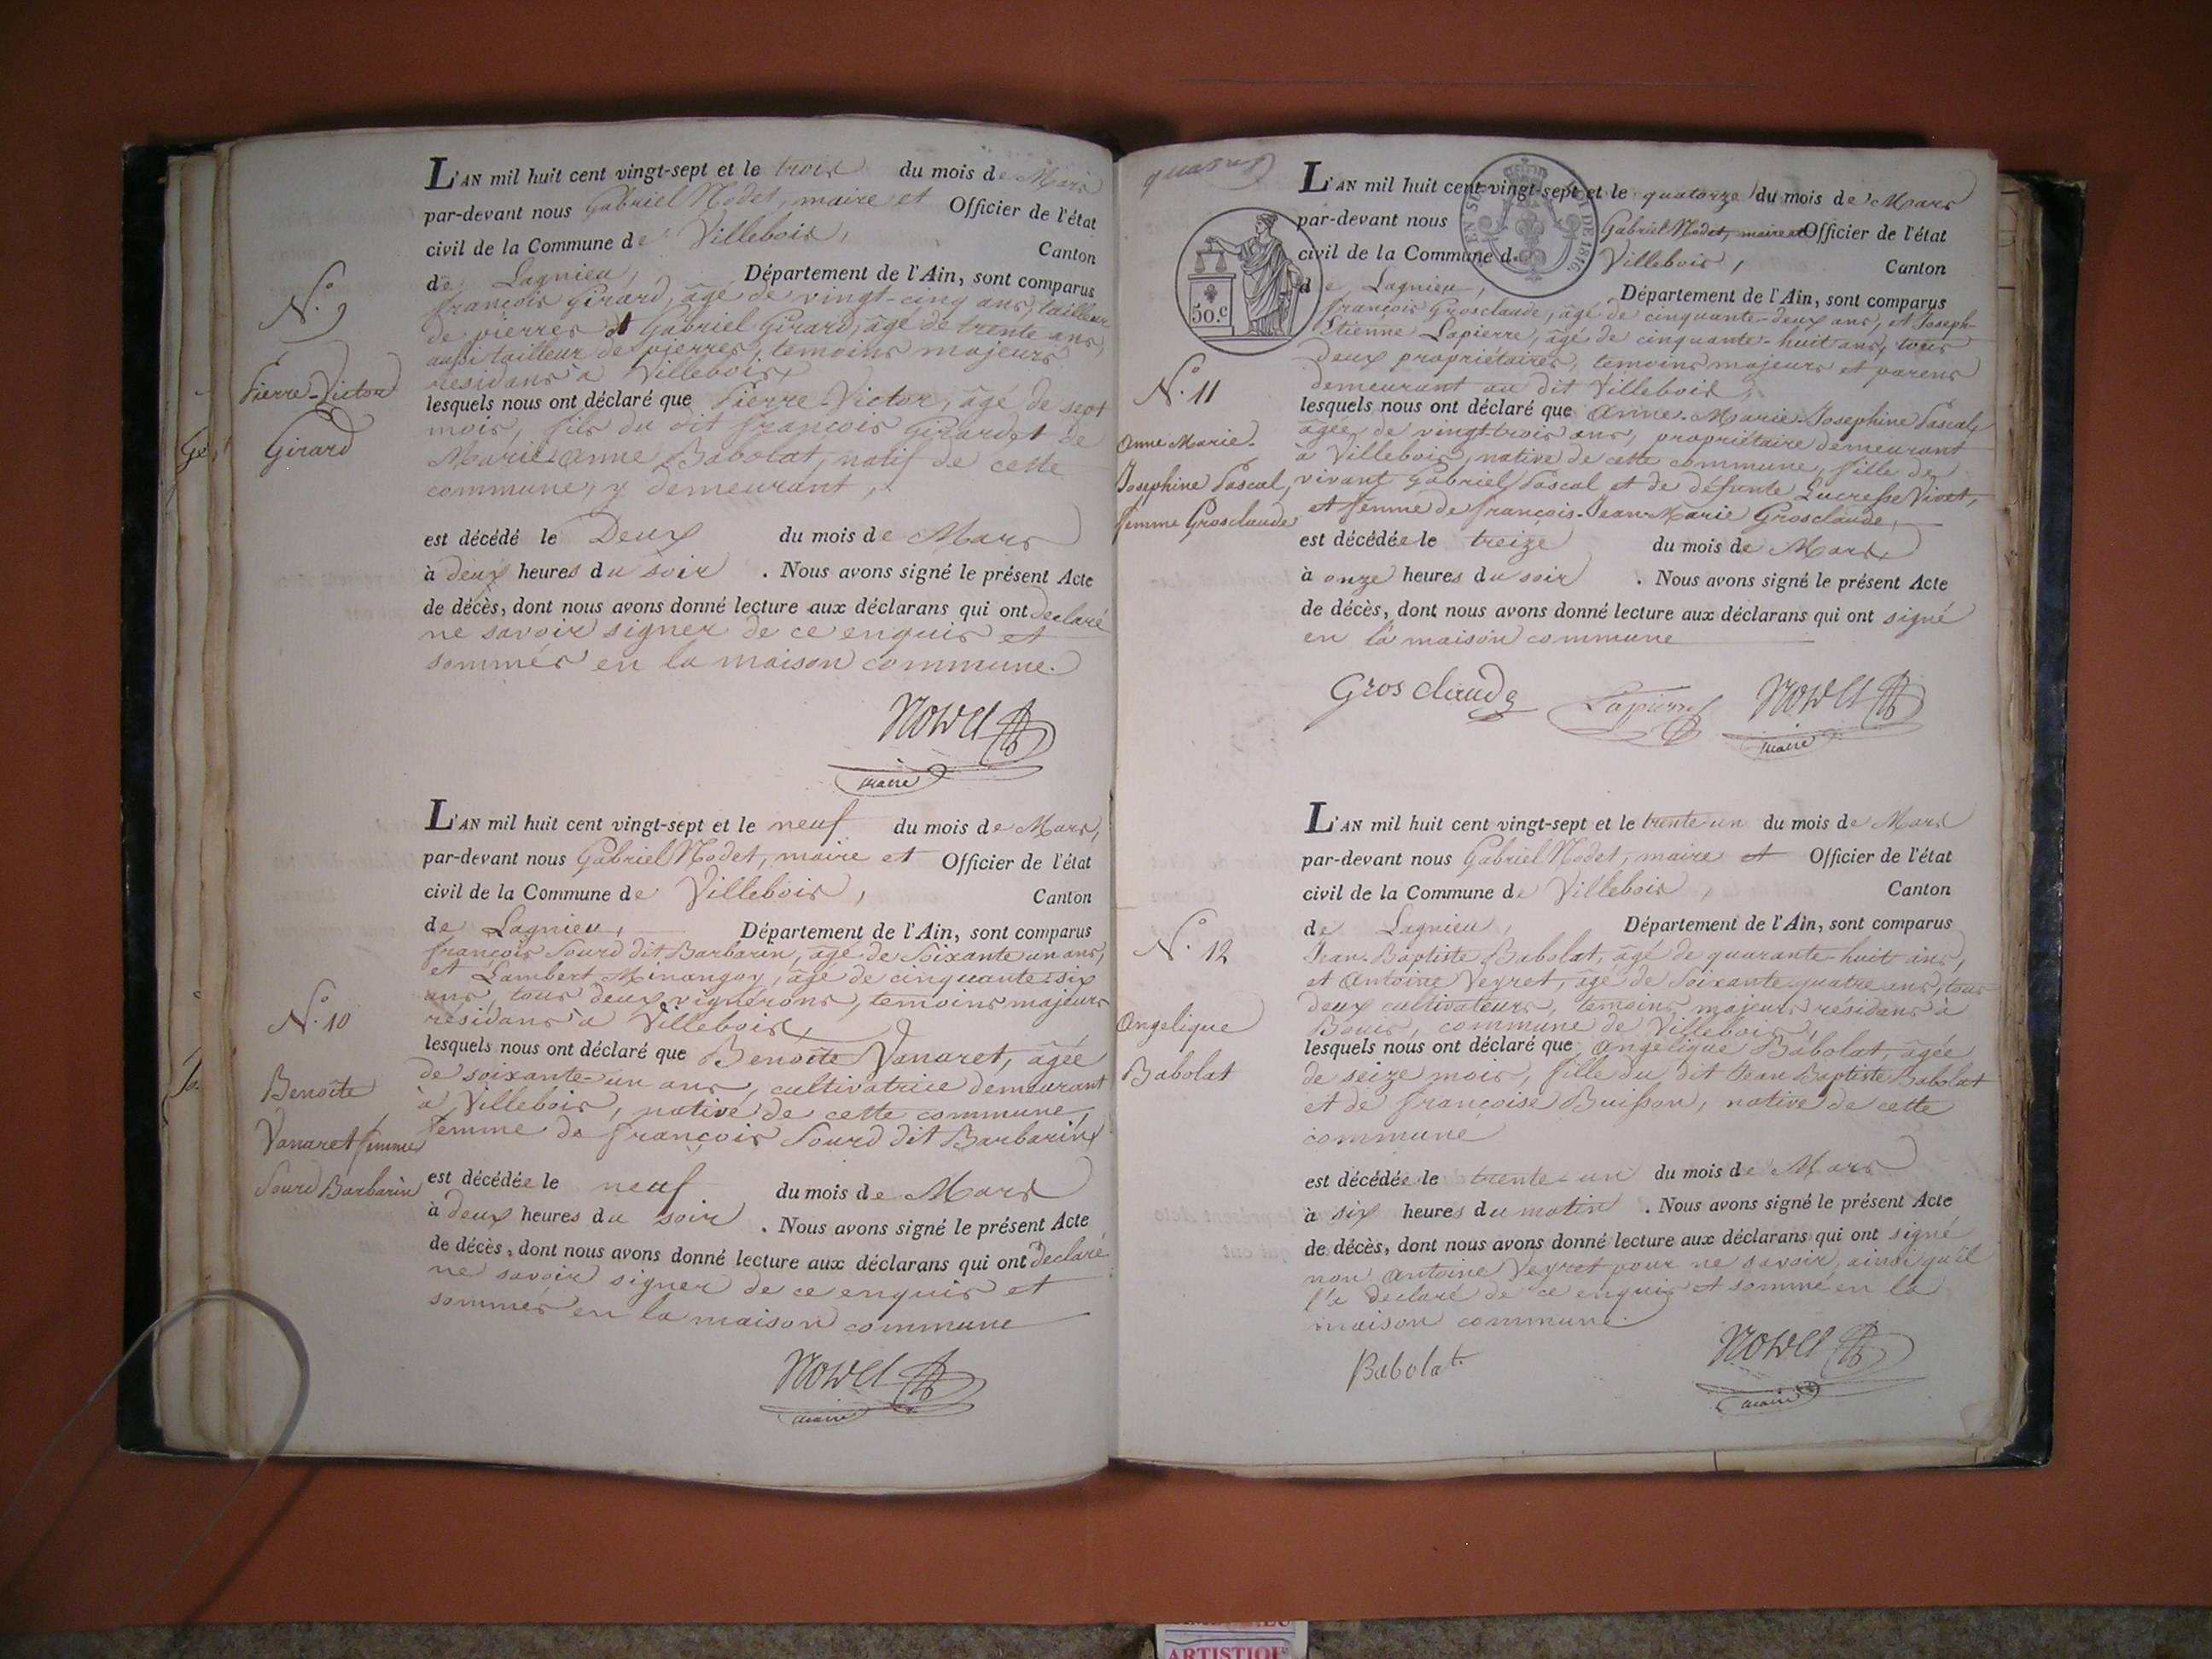 L'AN mil huit cent vingt-sept et le trois du mois de Mars
par-devant nous Gabriel Nodet, maire et Officier de l'état
civil de la Commune de Villebois, Canton
de Lagnieu, Département de l'Ain, sont comparus
françois Girard, âgé de vingt-cinq ans, tailleur
de pierres et Gabriel Girard, âgé de trente ans,
aussi tailleur de pierres, temoins majeurs
résidans à Villebois
lesquels nous ont déclaré que Pierre-Victor, âgé de sept
mois, fils du dit françois Girard et de
Marie-Anne Babolat, natif de cette
commune, y demeurant,
est décédé le Deux du mois de Mars
à deux heures du soir . Nous avons signé le présent Acte
de décès, dont nous avons donné lecture aux déclarans qui ont declaré
ne savoir signer de ce enquis et
sommés en la maison commune.
Nodet
maire
N.º 9
Pierre-Victor
Girard
L'AN mil huit cent vingt-sept et le neuf du mois de Mars,
par-devant nous Gabriel Nodet, maire et Officier de l'état
civil de la Commune de Villebois, Canton
de Lagnieu, Département de l'Ain, sont comparus
françois Sourd dit Barbarin, âgé de Soixante un ans,
et Lambert Minangoy, âgé de cinquante-six
ans, tous deux vignérons, temoins majeurs
résidans à Villebois,
lesquels nous ont déclaré que Benoîte Vanaret, âgée
de soixante-un ans, cultivatrice demeurant
à Villebois, native de cette commune,
femme de françois Sourd dit Barbarin,
est décédée le neuf du mois de Mars
à deux heures du soir . Nous avons signé le présent Acte
de décès, dont nous avons donné lecture aux déclarans qui ont declaré
ne savoir signer de ce enquis et
sommés en la maison commune
Nodet
maire
N.º 10
Benoîte
Vanaret femme
Sourd Barbarin
L'AN mil huit cent vingt-sept et le quatorze du mois de Mars
par-devant nous Gabriel Nodet, maire et Officier de l'état
civil de la Commune de Villebois, Canton
de Lagnieu, Département de l'Ain, sont comparus
françois Grosclaude, âgé de cinquante-deux ans, et Joseph-
Etienne Lapierre, âgé de cinquante-huit ans, tous
deux propriétaires, temoins majeurs et parens
demeurant au dit Villebois,
lesquels nous ont déclaré que Anne-Marie-Josephine Pascal,
âgée de vingt-trois ans, propriétaire demeurant
à Villebois, native de cette commune, fille de
vivant Gabriel Pascal et de défunte Lucresse Vivet,
et femme de françois-Jean-Marie Grosclaude,
est décédée le treize du mois de Mars
à onze heures du soir . Nous avons signé le présent Acte
de décès, dont nous avons donné lecture aux déclarans qui ont signé
en la maison commune
Gros claude Lapierre Nodet
maire
50.c
DE 1816
N.º 11
Anne Marie-
Josephine Pascal,
femme Grosclaude
L'AN mil huit cent vingt-sept et le trente un du mois de Mars
par-devant nous Gabriel Nodet, maire et Officier de l'état
civil de la Commune de Villebois, Canton
de Lagnieu, Département de l'Ain, sont comparus
Jean-Baptiste Babolat, âgé de quarante-huit ans,
et Antoine Veyret, âgé de Soixante-quatre ans, tous
deux cultivateurs, temoins majeurs résidans à
Bouis, commune de Villebois,
lesquels nous ont déclaré que Angélique Babolat, âgée
de seize mois, fille du dit Jean Baptiste Babolat
et de françoise Buisson, native de cette
commune
est décédée le trente-un du mois de Mars
à six heures du matin . Nous avons signé le présent Acte
de décès, dont nous avons donné lecture aux déclarans qui ont signé
non Antoine Veyret pour ne savoir, ainsi qu'il
l'a declaré de ce enquis et sommé en la
maison commune.
Babolat Nodet
maire
N.º 12
Angelique
Babolat
ARTISTIQU